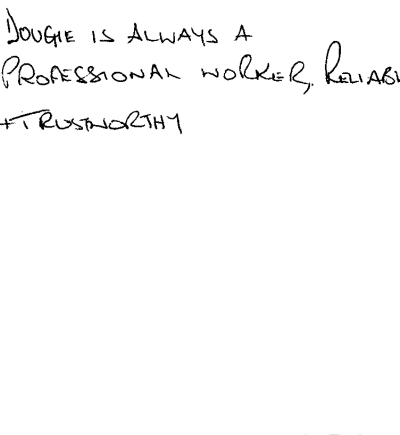 DOUGIE IS ALWAYS A
PROFESSIONAL WORKER, RELIABL
+ TRUSTWORTHY